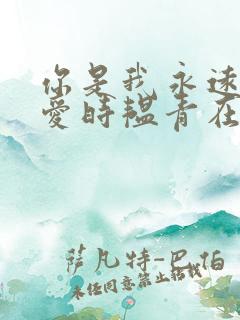 你是我永远
爱时韫青在
萨凡特-巴伯
未经同意禁止搭载